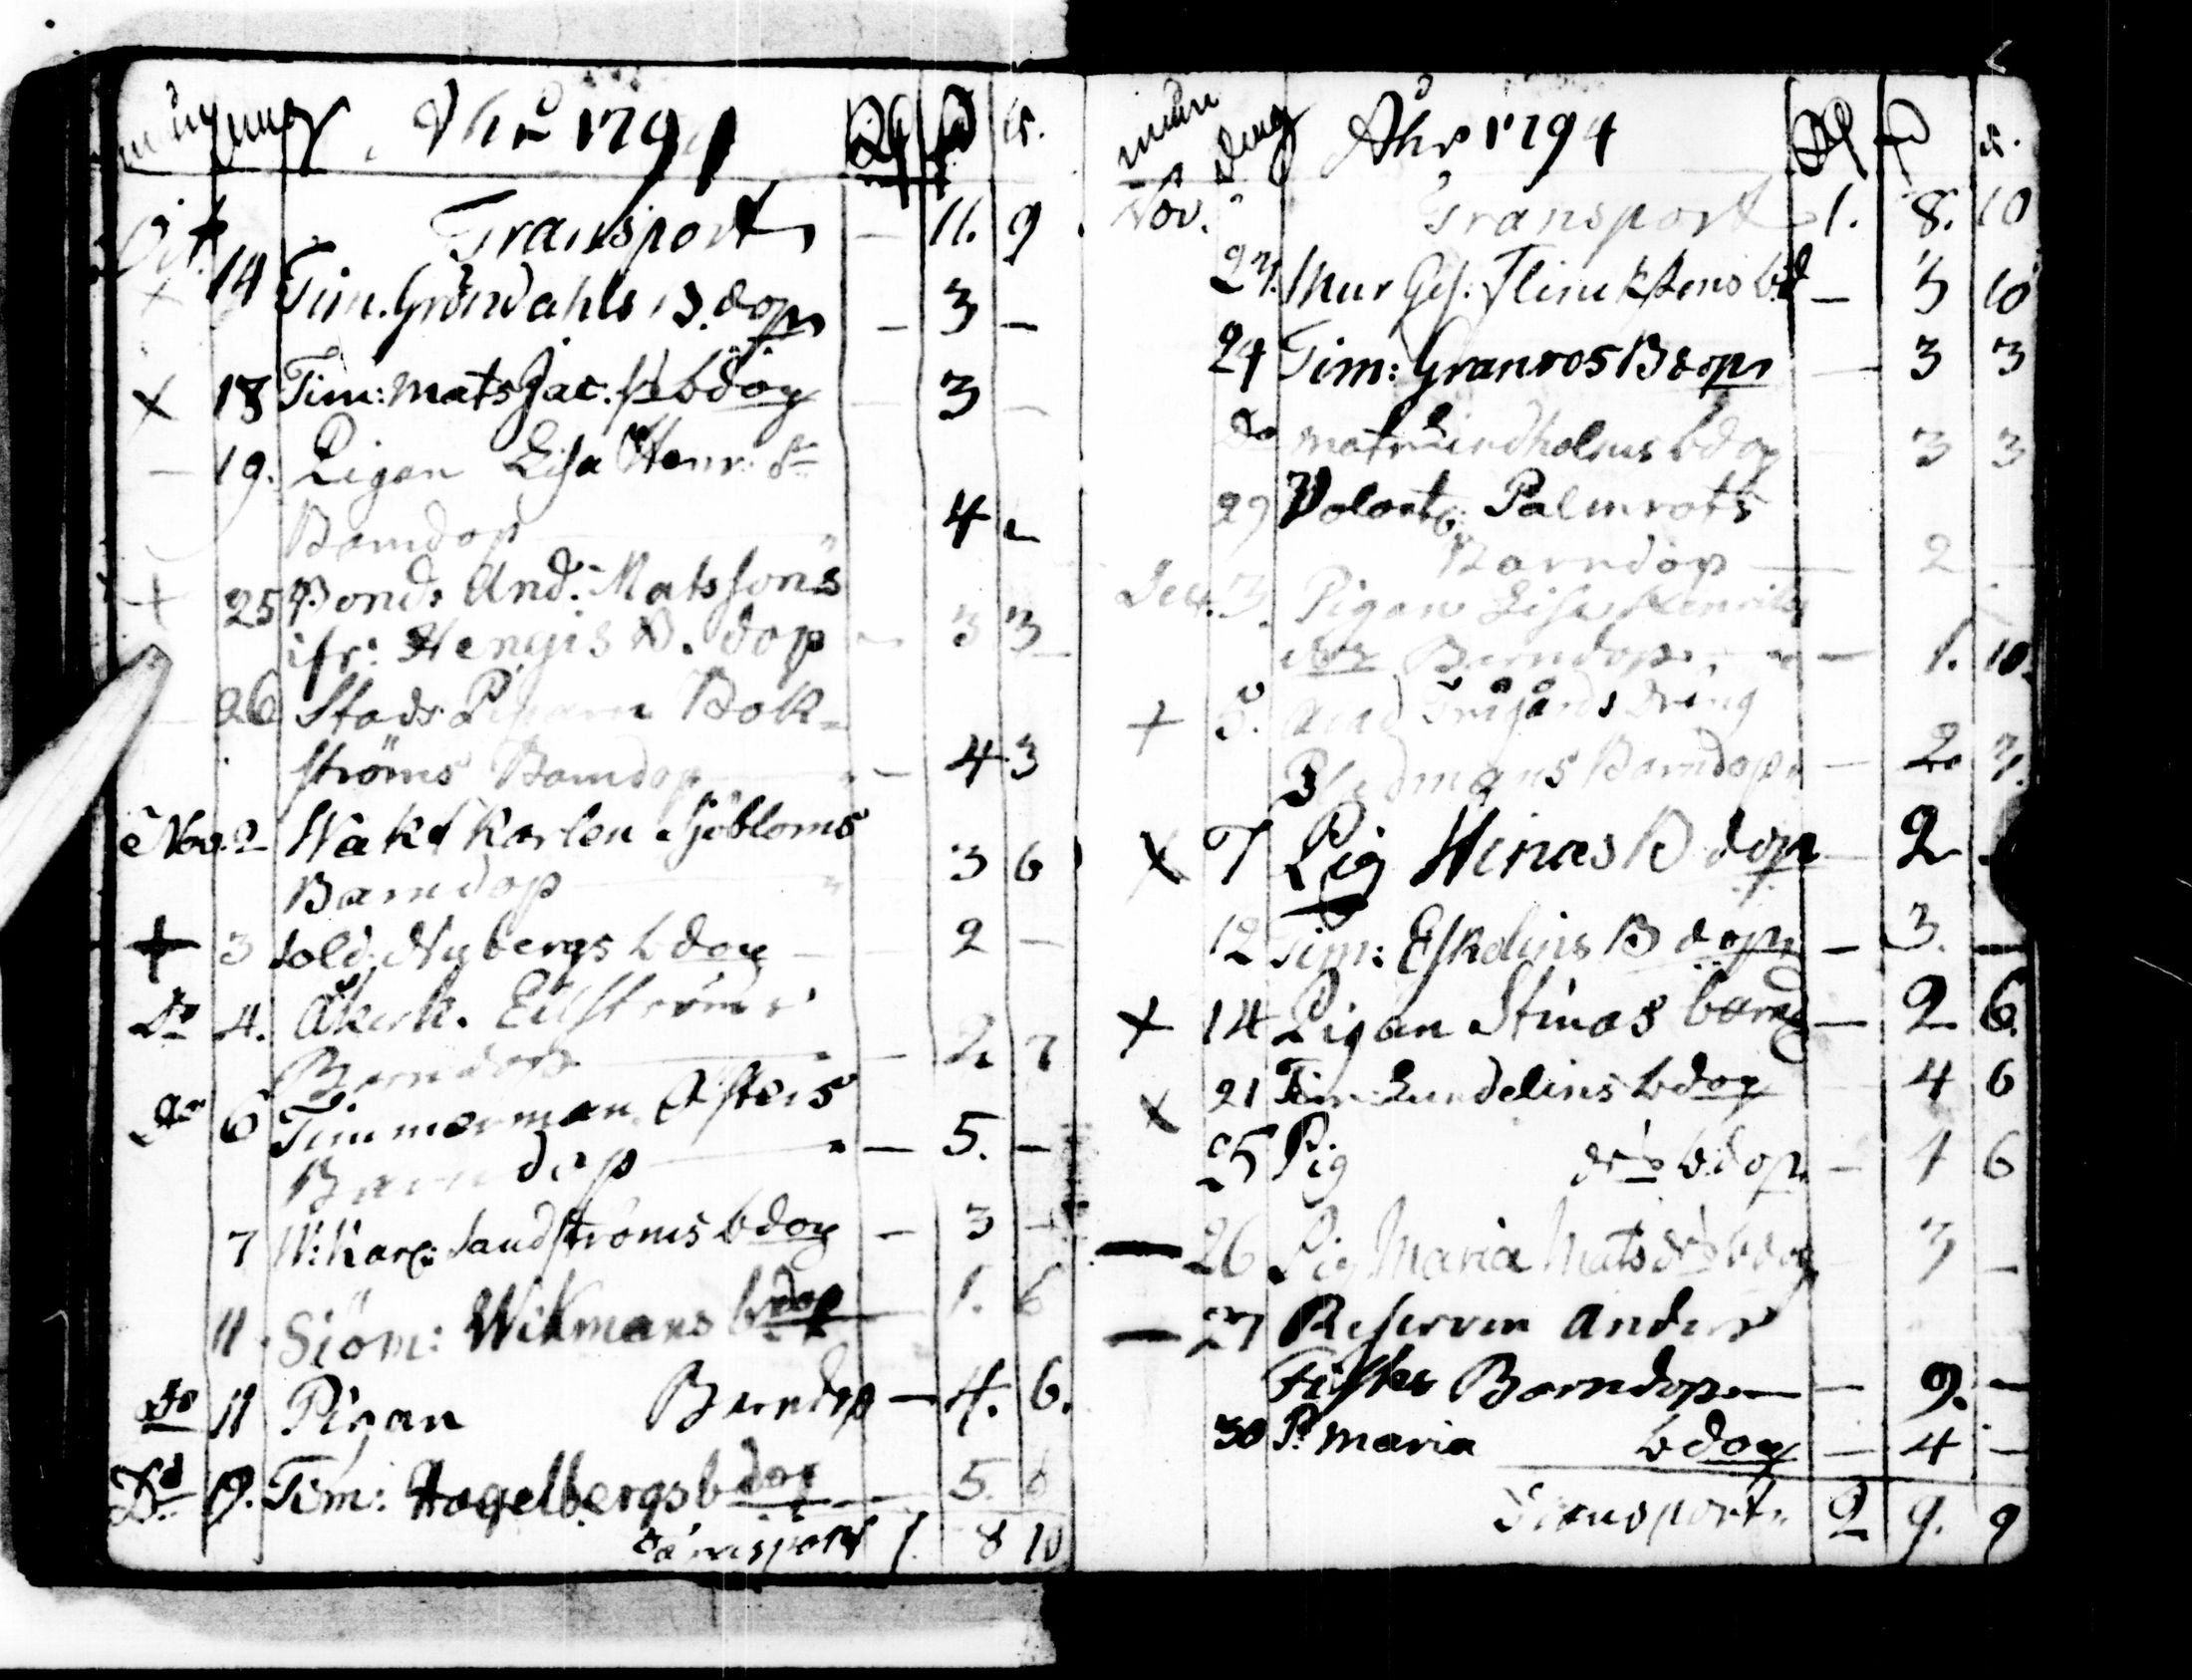 Åhr 1794
Transport — 11. 9
Oct. 14 Tim. Gröndahls B. dop — 3 —
× 18 Tim: Mats Jac. bdop — 3 —
— 19. Pigan Lisa Henr: dr
Barndop 4
+ 25 Bond. And: Matssons
ifr: Hengis B. dop — 3 3
26 Stads
ströms Barndop — 4 3
Nov. 2 Wakt Karlen Sjöbloms
Barndop 3 6
+ 3 Sold. Nybergs bdop — 2 —
Do 4. Åkerk.
Barndop — 2 7
Do 6 Timmerman
Barndop — 5. —
7 W: Karl: Sandströms bdop — 3
11 Siöm: Wikmans bdop 1. 6
Do 11 Pigan Barndop — 4. 6.
Do 19. Tim: Hagelbergs bdop — 5. 6
Transport 1. 8 10
månd dag Åhr 1794
Nov. Transport 1. 8. 10
Mur Ges:
24 Tim: Granros B dop — 3 3
Do Lindholms bdop 3 3
29 Palmrots
Barndop — 2 —
Dec. 3. Pigan Lisa Henrics
dr Barndop — 1. 10.
+ 5. dräng
Barndop — 2
× 7 Pig Stinas B dop — 2
12 Tim: Eskelins B dop — 3. —
× 14 Pigan Stinas barnd — 2 6.
× 21 Tim: Lundelins bdop 4 6
25 Pig drs bdop — 4 6
— 26 Pig Maria Mats drs bdop 3 —
— 27 Anders
Barndop — 9. —
30 P. Maria bdop — 4 —
Transport 2 9. 9